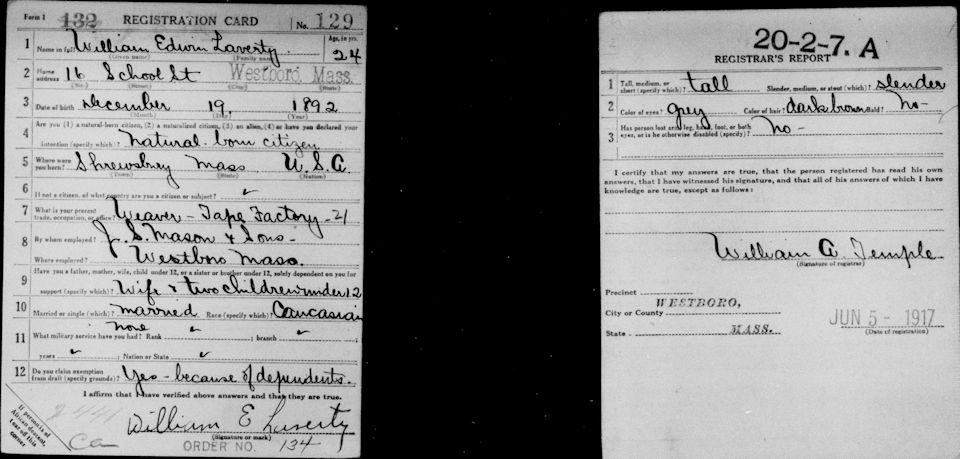 Form 1 132 REGISTRATION CARD No. 129
1 Name in full William Edwin Laverty Age, in yrs. 24
(Given name) (Family name)
2 Home address 16 School St Westboro, Mass.
(No.) (Street) (City) (State)
3 Date of birth December 19, 1892
(Month) (Day) (Year)
4 Are you (1) a natural-born citizen, (2) a naturalized citizen, (3) an alien, (4) or have you declared your
intention (specify which)? Natural born citizen
5 Where were you born? Shrewsbury Mass U.S.A.
(Town) (State) (Nation)
6 If not a citizen, of what country are you a citizen or subject? ✓
7 What is your present trade, occupation, or office? Weaver - Tape Factory - 21
8 By whom employed? J. S. Mason & Sons -
Where employed? Westboro Mass.
9 Have you a father, mother, wife, child under 12, or a sister or brother under 12, solely dependent on you for
support (specify which)? Wife & two children under 12
10 Married or single (which)? married Race (specify which)? Caucasian
11 What military service have you had? Rank none ✓; branch ✓
years ✓; Nation or State ✓
12 Do you claim exemption from draft (specify grounds)? Yes - because of dependents.
I affirm that I have verified above answers and that they are true.
William E Laverty
(Signature or mark)
If person is of African descent, tear off this corner
ORDER NO. 134
20-2-7. A
REGISTRAR'S REPORT
1 Tall, medium, or short (specify which)? tall Slender, medium, or stout (which)? slender
2 Color of eyes? grey Color of hair? dark brown Bald? No -
3 Has person lost arm, leg, hand, foot, or both eyes, or is he otherwise disabled (specify)? No -
I certify that my answers are true, that the person registered has read his own
answers, that I have witnessed his signature, and that all of his answers of which I have
knowledge are true, except as follows:
William A. Temple
(Signature of registrar)
Precinct
City or County WESTBORO,
State MASS.
JUN 5 - 1917
(Date of registration)